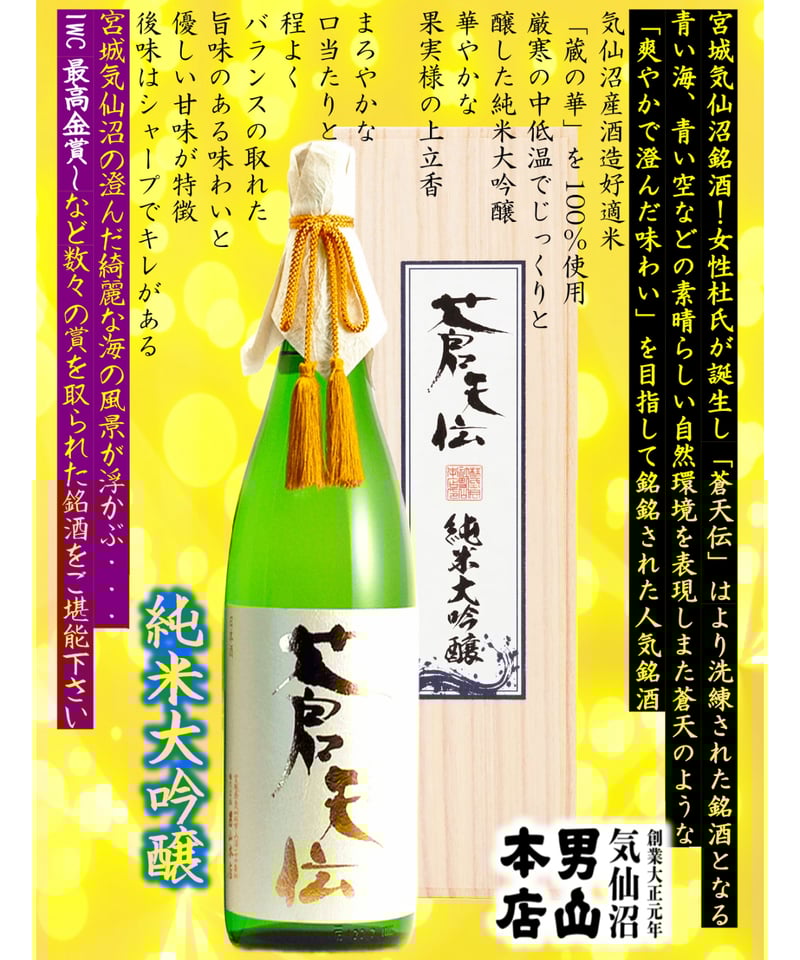 宮城気仙沼銘酒！女性杜氏が誕生し「蒼天伝」はより洗練された銘酒となる
青い海、青い空などの素晴らしい自然環境を表現しまた蒼天のような
「爽やかで澄んだ味わい」を目指して銘銘された人気銘酒
気仙沼産酒造好適米
「蔵の華」を100%使用
厳寒の中低温でじっくりと
醸した純米大吟醸
華やかな
果実様の上立香
まろやかな
口当たりと
程よく
バランスの取れた
旨味のある味わいと
優しい甘味が特徴
後味はシャープでキレがある
宮城気仙沼の澄んだ綺麗な海の風景が浮かぶ・・・
IWC 最高金賞～など数々の賞を取られた銘酒をご堪能下さい
蒼天伝
純米大吟醸
日本酒
蒼天伝
純米大吟醸
創業大正元年
気仙沼
男山
本店